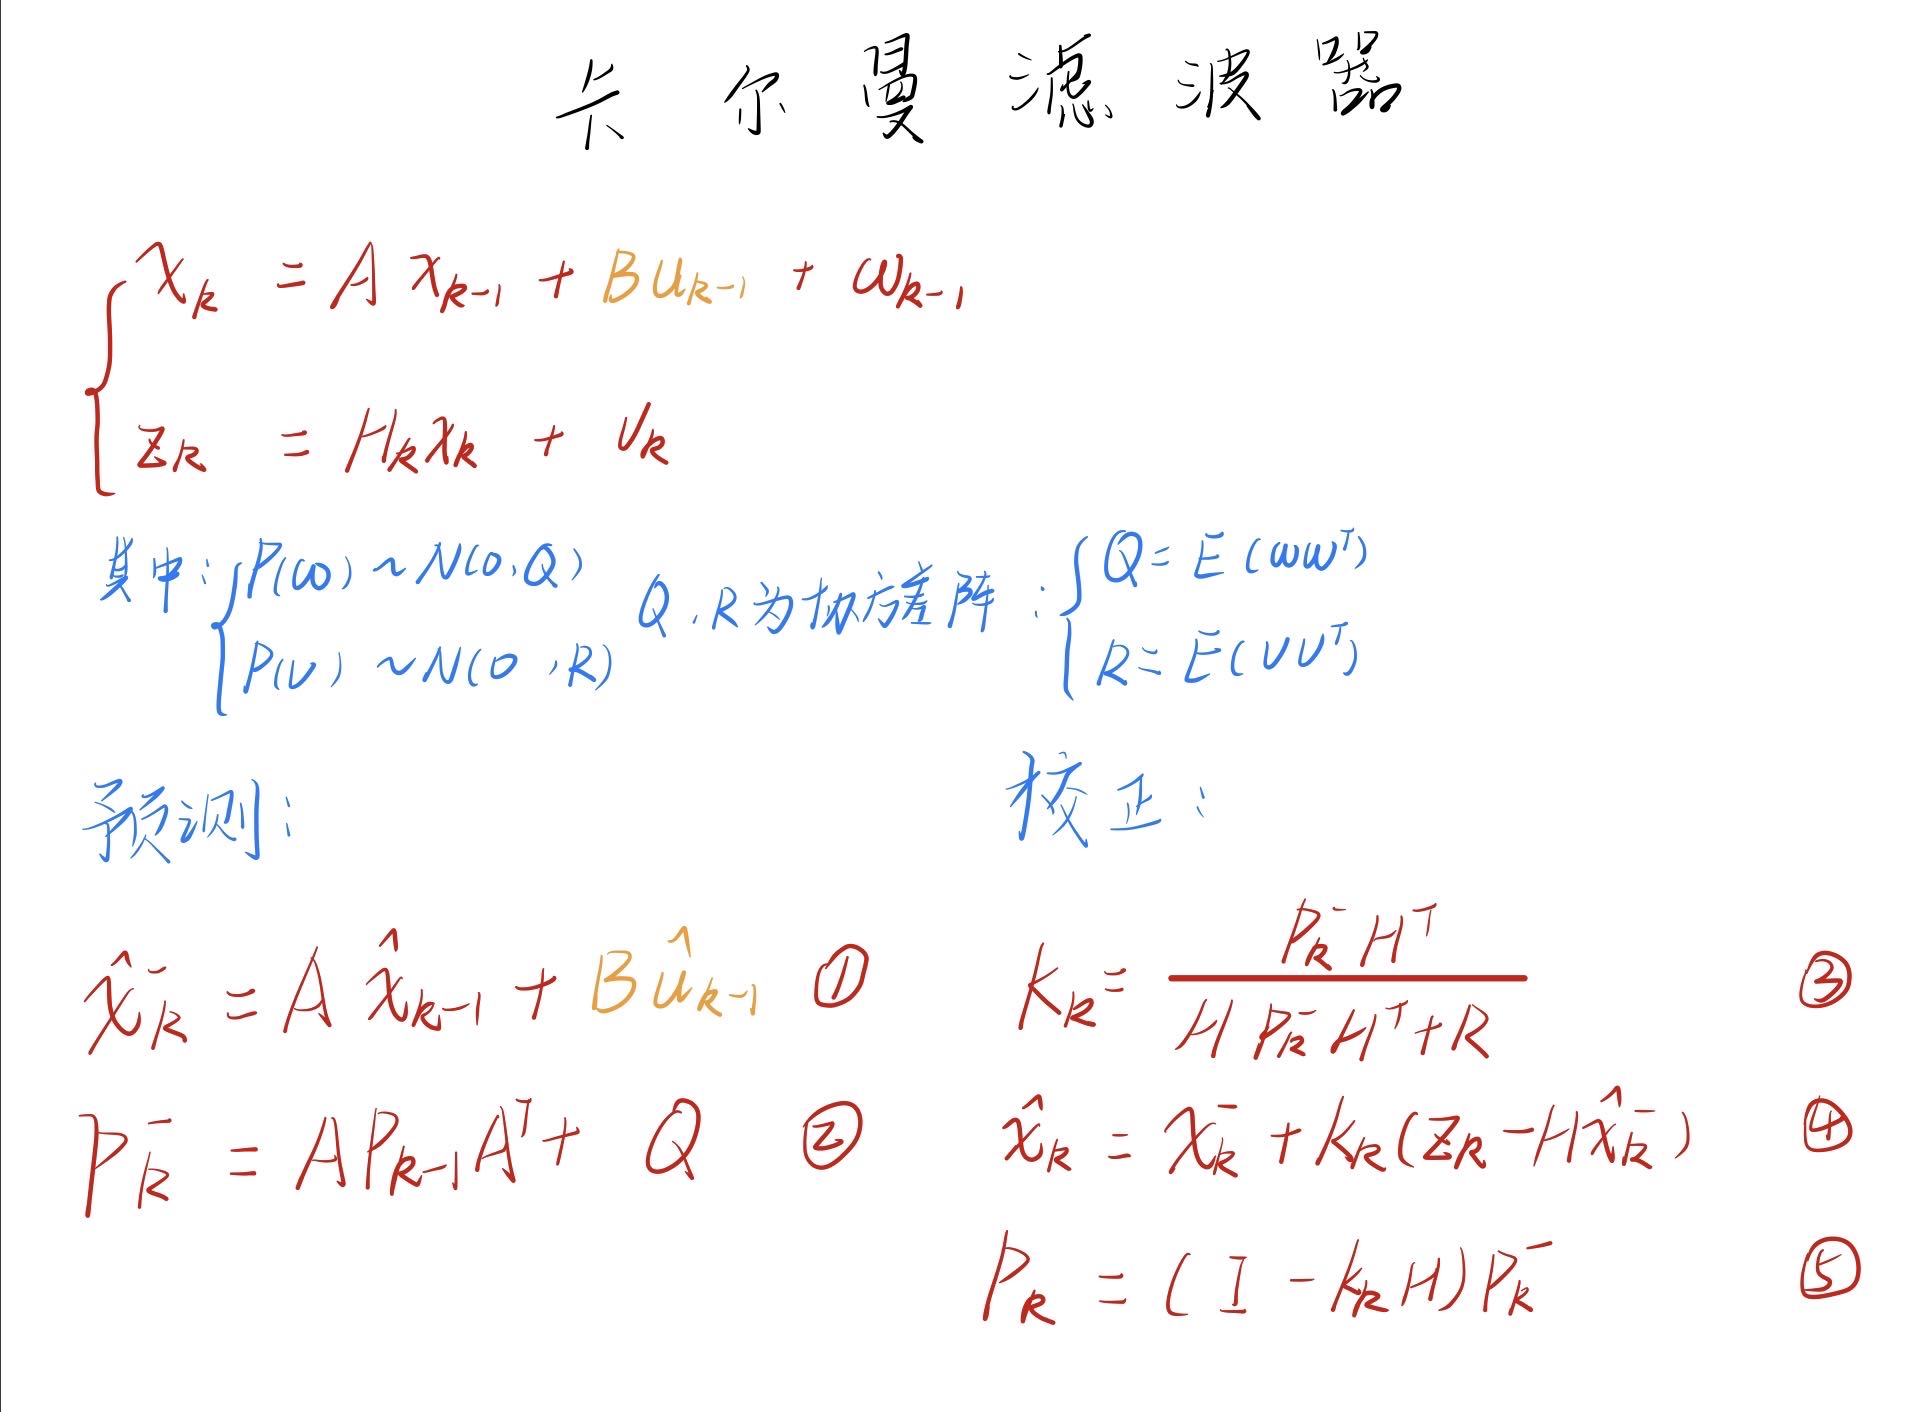 卡尔曼滤波器
x_k = A x_{k-1} + B u_{k-1} + ω_{k-1}
z_k = H_k x_k + v_k
其中: P(ω) ~ N(0, Q)
P(v) ~ N(0, R)
Q, R为协方差阵:
Q = E(ωω^T)
R = E(vv^T)
预测:
x̂_k^- = A x̂_{k-1} + B û_{k-1} ①
P_k^- = A P_{k-1} A^T + Q ②
校正:
K_k = \frac{P_k^- H^T}{H P_k^- H^T + R} ③
x̂_k = x_k^- + K_k (z_k - H x̂_k^-) ④
P_k = (I - K_k H) P_k^- ⑤